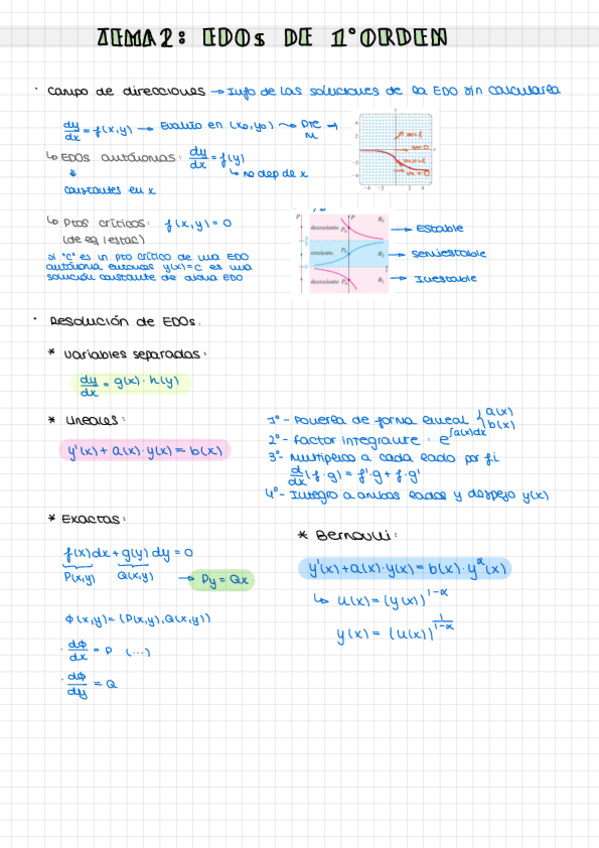 TEMA 2: EDOs DE 1º ORDEN
· Campo de direcciones → Info de las soluciones de la EDO sin calcularla
dy/dx = f(x,y) → Evalúo en (x₀,y₀) ⤳ Pte →
m
↳ EDOs autónomas: dy/dx = f(y)
↳ no dep de x
constantes en x
↳ Ptos críticos: f(x,y) = 0
(de eq | estac)
si "c" es un pto crítico de una EDO
autónoma entonces y(x) = c es una
solución constante de dicha EDO
decreciente
creciente
decreciente
→ Estable
→ Semiestable
→ Inestable
· Resolución de EDOs.
* Variables separadas:
dy/dx = g(x) · h(y)
* Lineales:
y'(x) + a(x) · y(x) = b(x)
1º - Ponerla de forma lineal { a(x) b(x)
2º - Factor integrante: e^∫a(x)dx
3º - Multiplico a cada lado por f.i
d/dx (f · g) = f' · g + f · g'
4º - Integro a ambos lados y despejo y(x)
* Exactas:
f(x)dx + g(y) dy = 0
P(x,y) Q(x,y) → Py = Qx
Φ(x,y) = (P(x,y), Q(x,y))
· dΦ/dx = P (...)
· dΦ/dy = Q
* Bernoulli:
y'(x) + a(x) · y(x) = b(x) · y^α(x)
↳ u(x) = (y(x))^1-α
y(x) = (u(x))^1/1-α